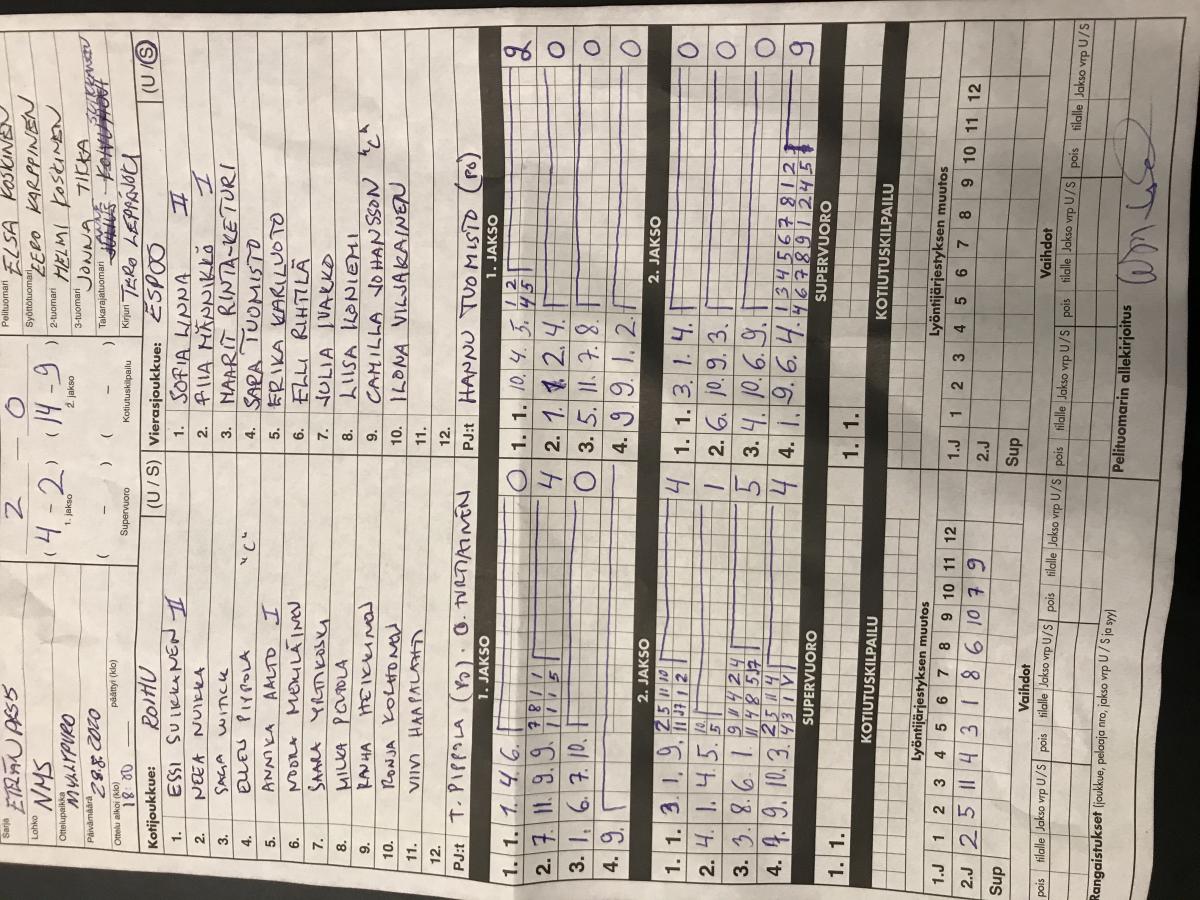 Sarja ETELÄN PÄSS
Lohko NMS
Ottelupaikka MYLLYPURO
Päivämäärä 28.8.2020
Ottelu alkoi (klo) 18:00 päättyi (klo)
2 – 0
( 4 – 2 ) ( 14 – 9 )
1. jakso 2. jakso
( – ) ( – )
Supervuoro Kotiutuskilpailu
Pelituomari ELSA KOSKINEN
Syöttötuomari EERO KARPPINEN
2-tuomari HELMI KOSKINEN
3-tuomari JONNA TIKKA
Takarajatuomari
Kirjuri TERO LEPPÄJOKI
Kotijoukkue: ROIHU (U / S)
1. ESSI SUIKKANEN II
2. NEEA NUIKKA
3. SAGA WITICK
4. ELLEN PIPPOLA "C"
5. ANNIKA AALTO I
6. NOORA MEHILÄINEN
7. SAARA YLTIKOSKI
8. MILKA POUTOLA
9. RAIHA HEIKKINEN
10. RONJA KOLHONEN
11. VIIVI HAAPALAHTI
12.
PJ:t T. PIPPOLA (PO). O. TURTIAINEN
Vierasjoukkue: ESPOO (U / S)
1. SOFIA LINNA II
2. PIIA MÄNNIKKÖ I
3. MAARIT RINTA-KETURI
4. SARA TUOMISTO
5. ERIKA KARILUOTO
6. ELLI RIHTILÄ
7. JULIA IVAKKO
8. LIISA ILONIEMI
9. CAMILLA JOHANSSON "C"
10. ILONA VILJAKAINEN
11.
12.
PJ:t HANNU TUOMISTO (PO)
1. JAKSO 1. JAKSO
1. 1. 1. 4. 6. 0
2. 7. 11. 9. 9. 7 8 1 1 4
1 1 1 5
3. 1. 6. 7. 10. 0
4. 9.
1. 1. 10. 4. 5. 1 2 2
4 5
2. 7. 2. 4. 0
3. 5. 11. 7. 8. 0
4. 9 9. 1. 2. 0
2. JAKSO 2. JAKSO
1. 1. 3. 1. 9. 2 5 11 10 4
11 17 1 2
2. 4. 1. 4. 5. 10. 1
5
3. 3. 8. 6. 1. 9 11 4 2 4 5
11 4 8 5 17
4. 9. 10. 3. 2 5 11 4 4
4 3 1 V
1. 1. 3. 1. 4. 0
2. 6. 10. 9. 3. 0
3. 4. 10. 6. 9. 0
4. 1. 9. 6. 4. 1 3 4 5 6 7 8 1 2 9
4 6 7 8 9 1 2 4 5
SUPERVUORO SUPERVUORO
1. 1. 1. 1.
KOTIUTUSKILPAILU KOTIUTUSKILPAILU
Lyöntijärjestyksen muutos Lyöntijärjestyksen muutos
1.J 1 2 3 4 5 6 7 8 9 10 11 12
2.J 2 5 11 4 3 1 8 6 10 7 9
Sup
1.J 1 2 3 4 5 6 7 8 9 10 11 12
2.J
Sup
Vaihdot Vaihdot
pois tilalle Jakso vrp U / S pois tilalle Jakso vrp U / S pois tilalle Jakso vrp U / S
pois tilalle Jakso vrp U / S pois tilalle Jakso vrp U / S pois tilalle Jakso vrp U / S
Rangaistukset (joukkue, pelaaja nro, jakso vrp U / S ja syy)
Pelituomarin allekirjoitus